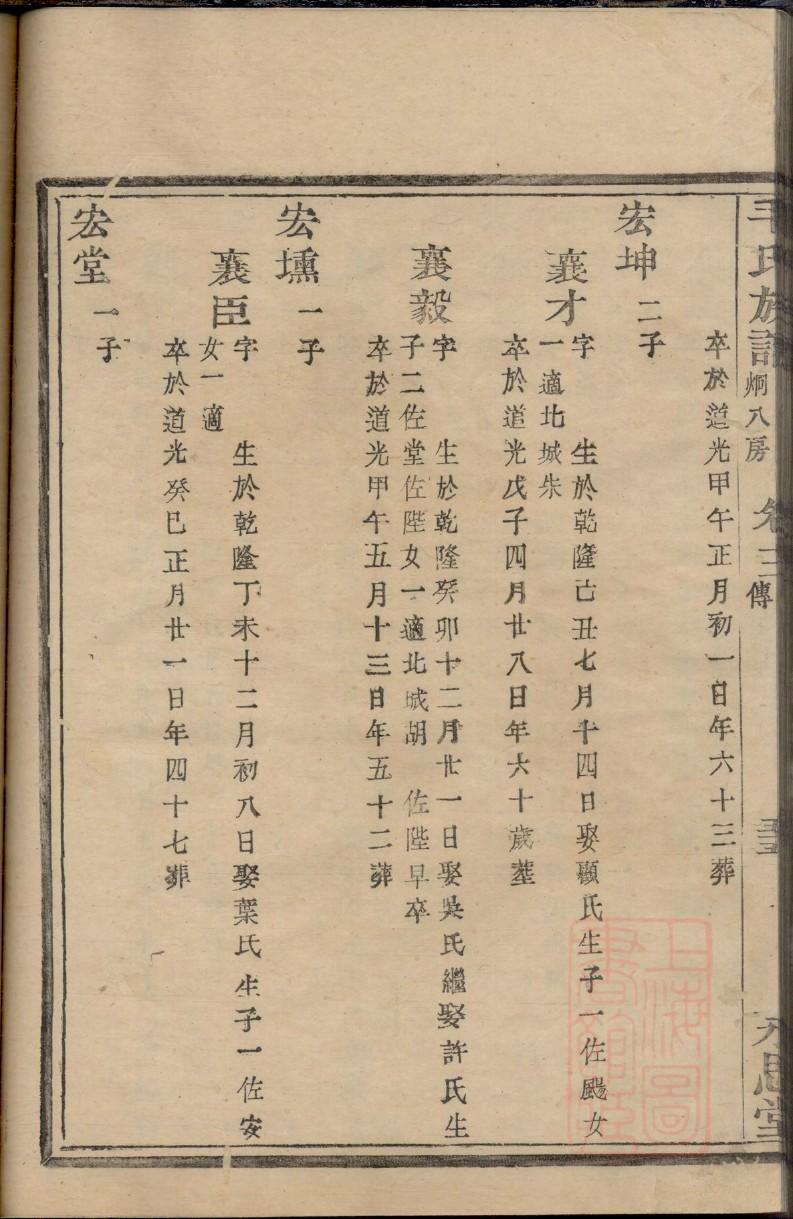 毛氏族譜 炯八房 卷三 傳 永思堂
卒於道光甲午正月初一日年六十三葬
宏坤 二子
襄才 字 生於乾隆己丑七月十四日娶顧氏生子一佐颺女
一適北城朱
卒於道光戊子四月廿八日年六十歲塟
襄毅 字 生於乾隆癸卯十二月廿一日娶吳氏繼娶許氏生
子二佐堂佐陛女一適北城胡 佐陛早卒
卒於道光甲午五月十三日年五十二葬
宏壎 一子
襄臣 字 生於乾隆丁未十二月初八日娶葉氏生子一佐安
女一適
卒於道光癸巳正月廿一日年四十七葬
宏堂 一子
上海圖
書館藏